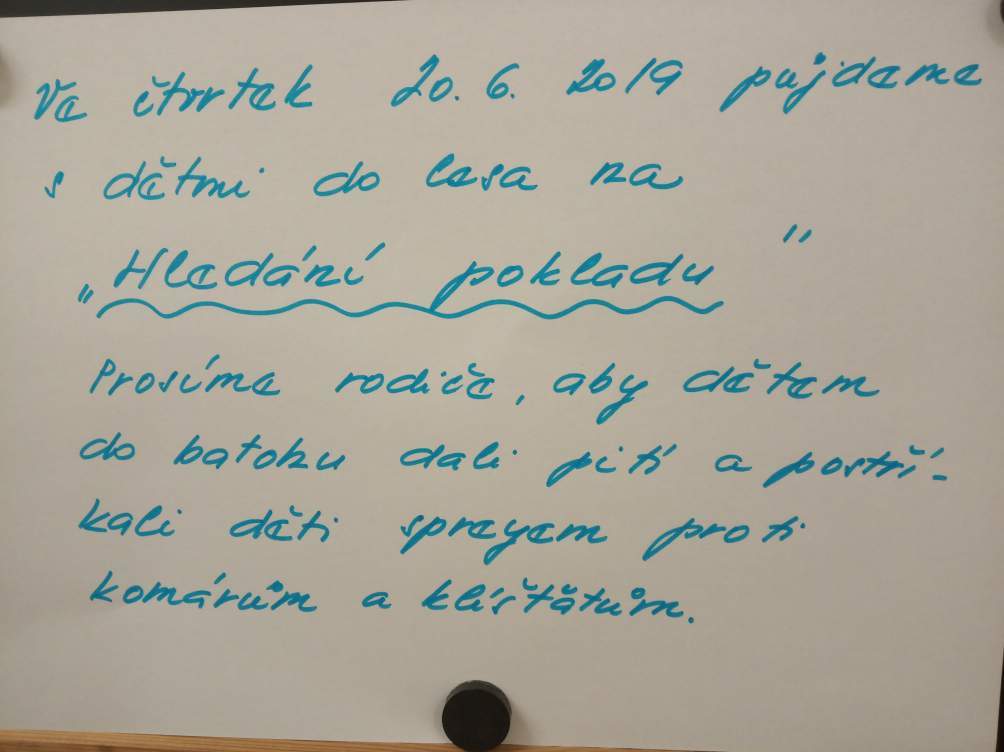 Ve čtvrtek 20. 6. 2019 půjdeme
s dětmi do lesa na
„Hledání pokladu"
Prosíme rodiče, aby dětem
do batohu dali pití a postří-
kali děti sprayem proti
komárům a klíšťatům.